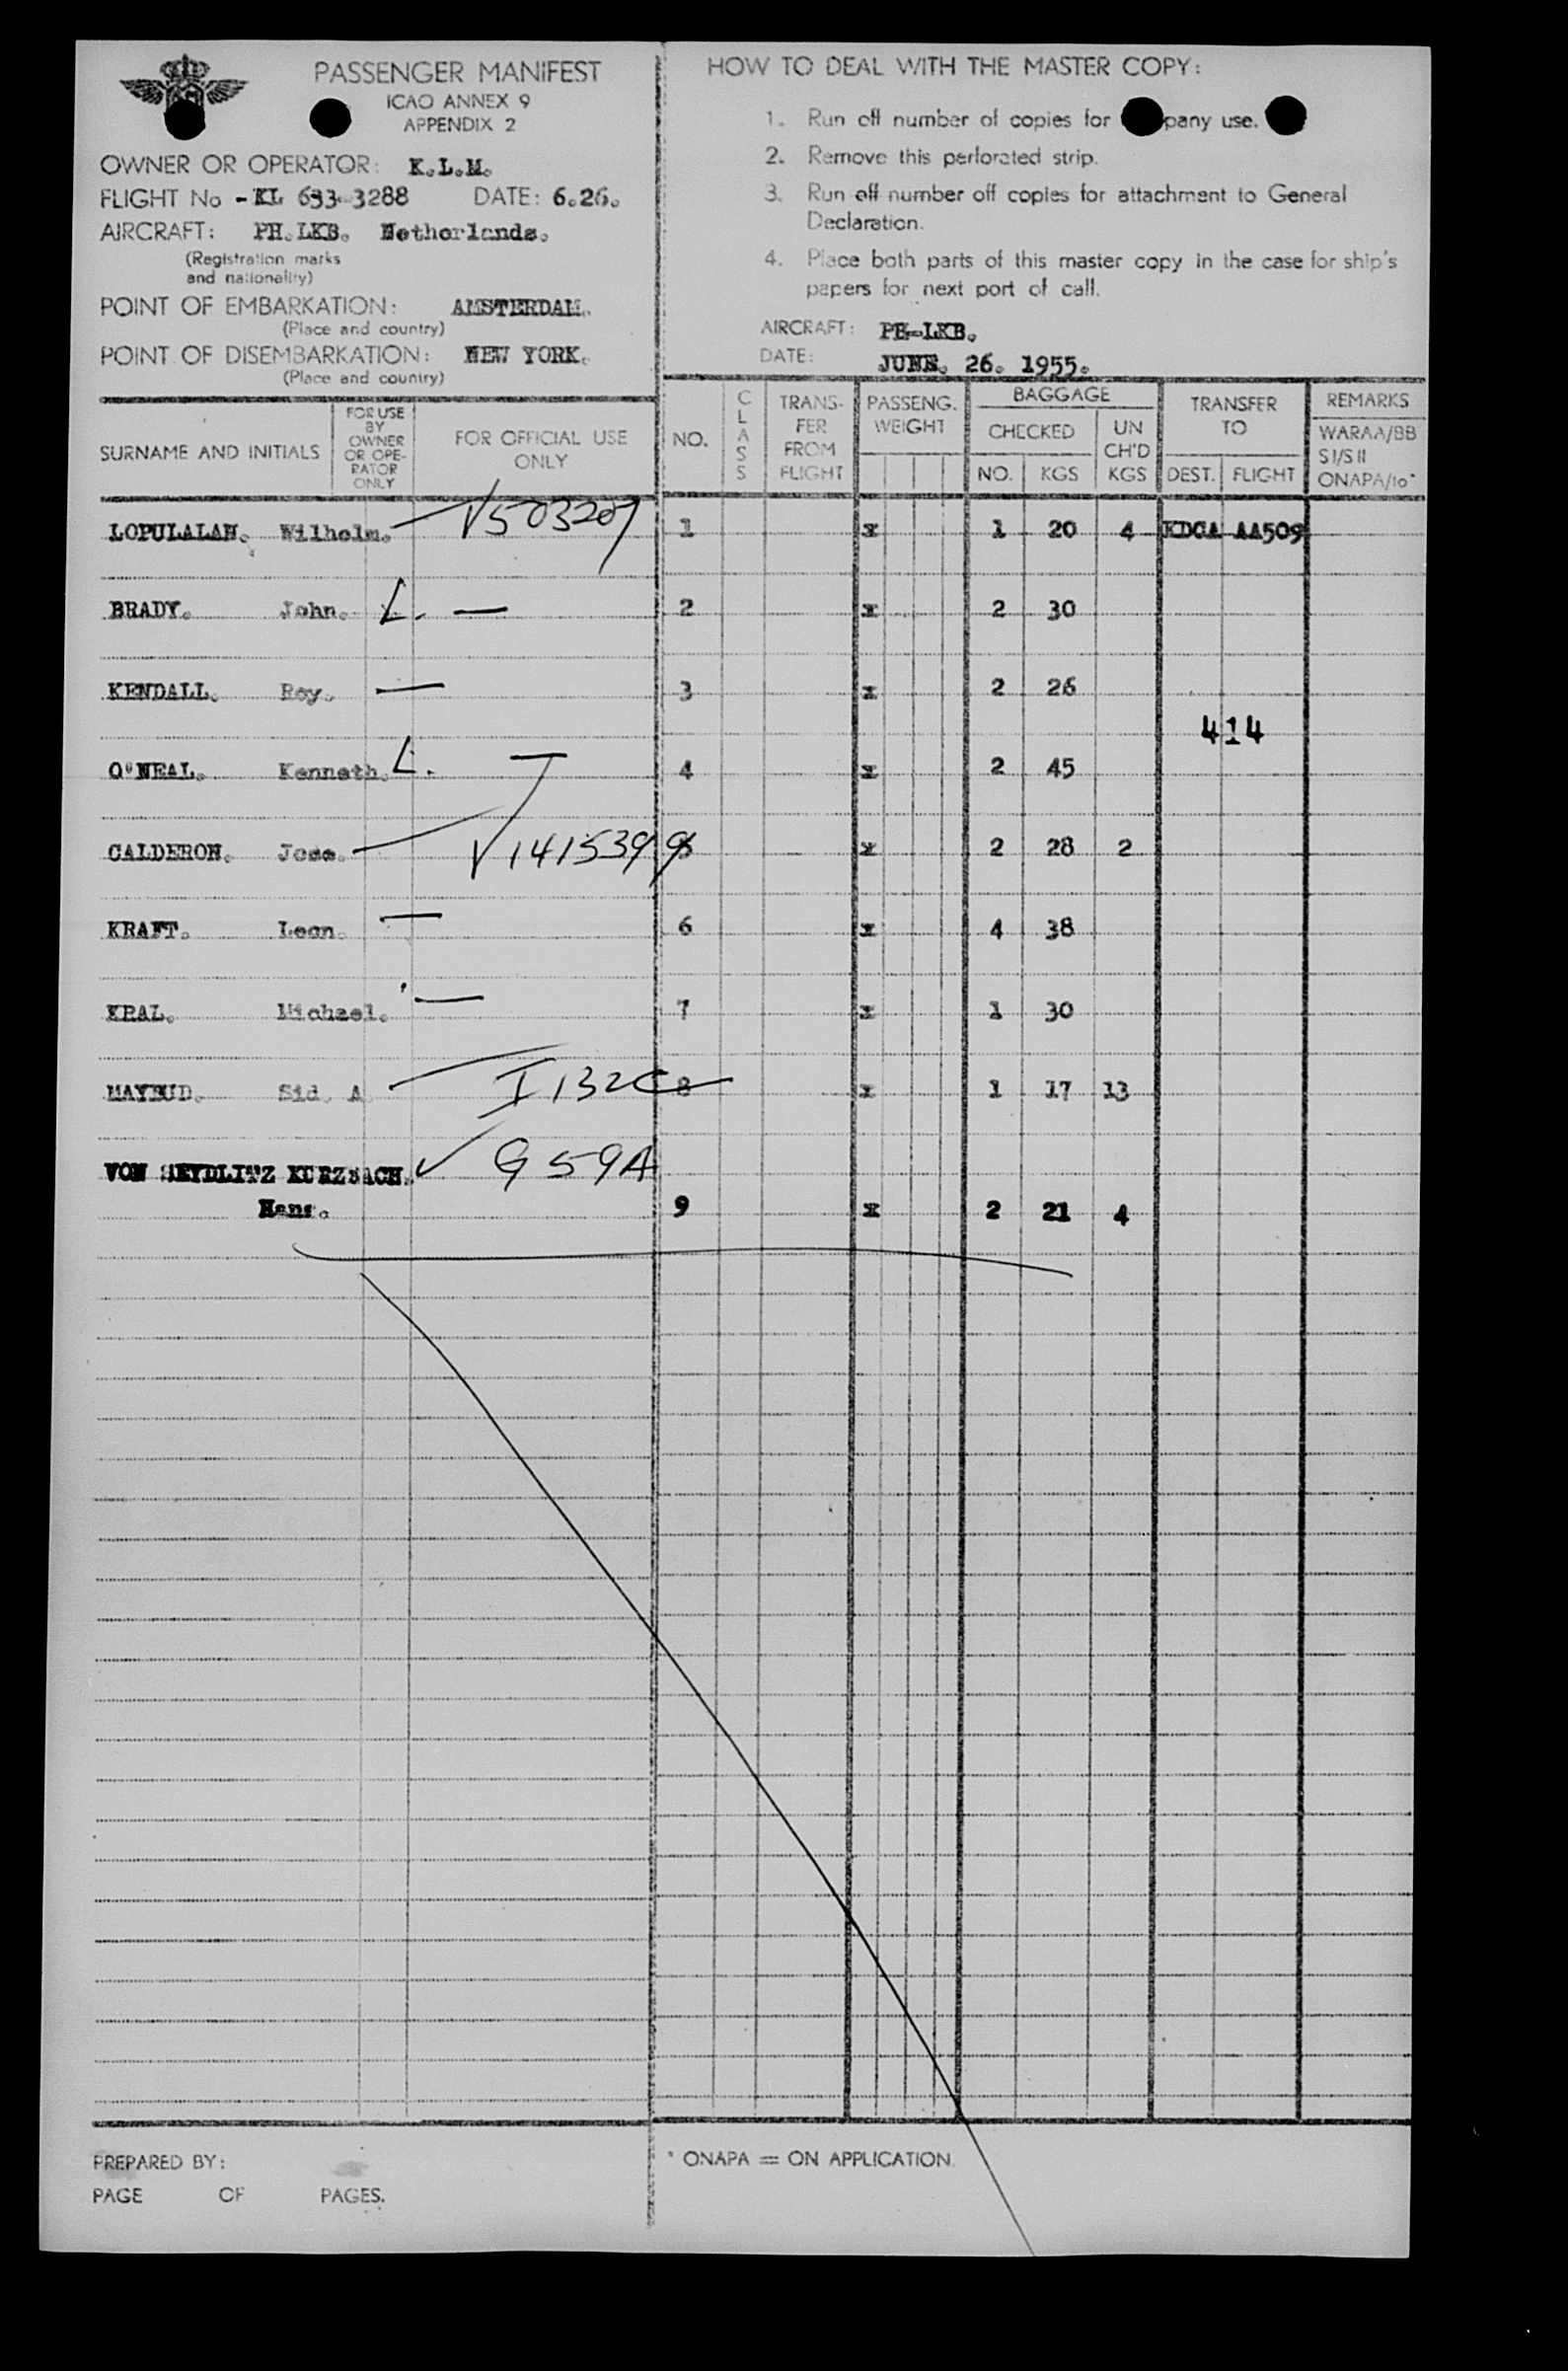 PASSENGER MANIFEST
ICAO ANNEX 9
APPENDIX 2
OWNER OR OPERATOR: K.L.M.
FLIGHT No - KL 633-3288 DATE: 6.26.
AIRCRAFT: PH.LKB. Netherlands.
(Registration marks
and nationality)
POINT OF EMBARKATION: AMSTERDAM.
(Place and country)
POINT OF DISEMBARKATION: NEW YORK.
(Place and country)
HOW TO DEAL WITH THE MASTER COPY:
1. Run off number of copies for pany use.
2. Remove this perforated strip.
3. Run off number off copies for attachment to General
Declaration.
4. Place both parts of this master copy in the case for ship's
papers for next port of call.
AIRCRAFT: PH-LKB.
DATE: JUNE. 26. 1955.
SURNAME AND INITIALS
FOR USE
BY
OWNER
OR OPE-
RATOR
ONLY
FOR OFFICIAL USE
ONLY
NO.
CLASS
TRANS-
FER
FROM
FLIGHT
PASSENG.
WEIGHT
BAGGAGE
CHECKED
NO. KGS
UN
CH'D
KGS
TRANSFER
TO
DEST. FLIGHT
REMARKS
WARAA/BB
SI/SII
ONAPA/10*
LOPULALAN. Wilhelm. V503207 1 x 1 20 4 KDCA AA509
BRADY. John. L. — 2 x 2 30
KENDALL. Roy. — 3 x 2 26
414
O'NEAL. Kenneth. L. — 4 x 2 45
CALDERON. Jose. V1415399 5 x 2 28 2
KRAFT. Leon. — 6 x 4 38
KRAL. Michael. — 7 x 1 30
Sid. A. I132C 8 x 1 17 13
VON SEYDLITZ KURZBACH. ✓ G59A
Hans. 9 x 2 21 4
PREPARED BY:
PAGE OF PAGES.
* ONAPA = ON APPLICATION.